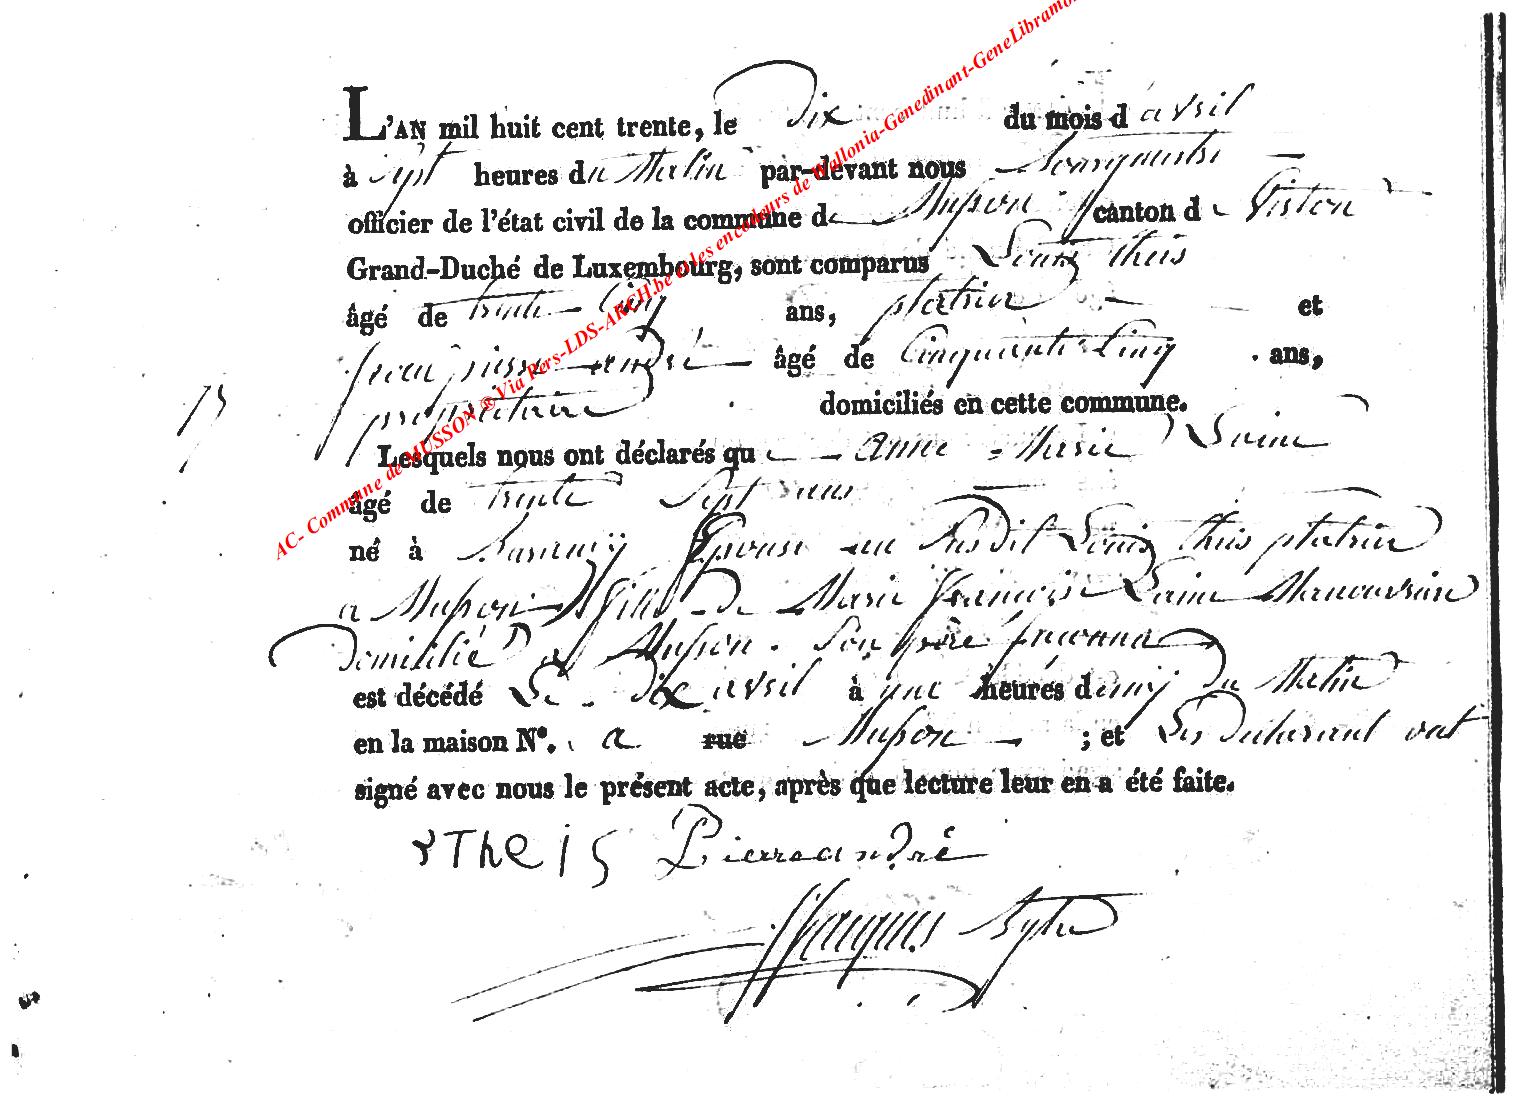 L'AN mil huit cent trente, le Dix du mois d avril
à Sept heures du Matin par-devant nous Bourgmestre
officier de l'état civil de la commune de Musson canton de Virton
Grand-Duché de Luxembourg, sont comparus Louis theis
âgé de trente-Cinq ans, platrier et
jean pierre andré âgé de Cinquante Cinq ans,
propriétaire domiciliés en cette commune.
Lesquels nous ont déclarés que anne Marie
âgé de trente Sept ans
né à Epouse au susdit Louis theis platrier
a Musson fille de Marie françoise Manouvrière
Domicilié a Musson. Son père inconnu
est décédé Le Dix avril à une heures demij Du Matin
en la maison N°. a rue Musson ; et Les Déclarant ont
signé avec nous le présent acte, après que lecture leur en a été faite.
Theis Pierre andré
Jacques
AC- Commune de MUSSON ® Via Pers-LDS-ARCH.be et les encodeurs de Wallonia-Genedinant-GeneLibramo